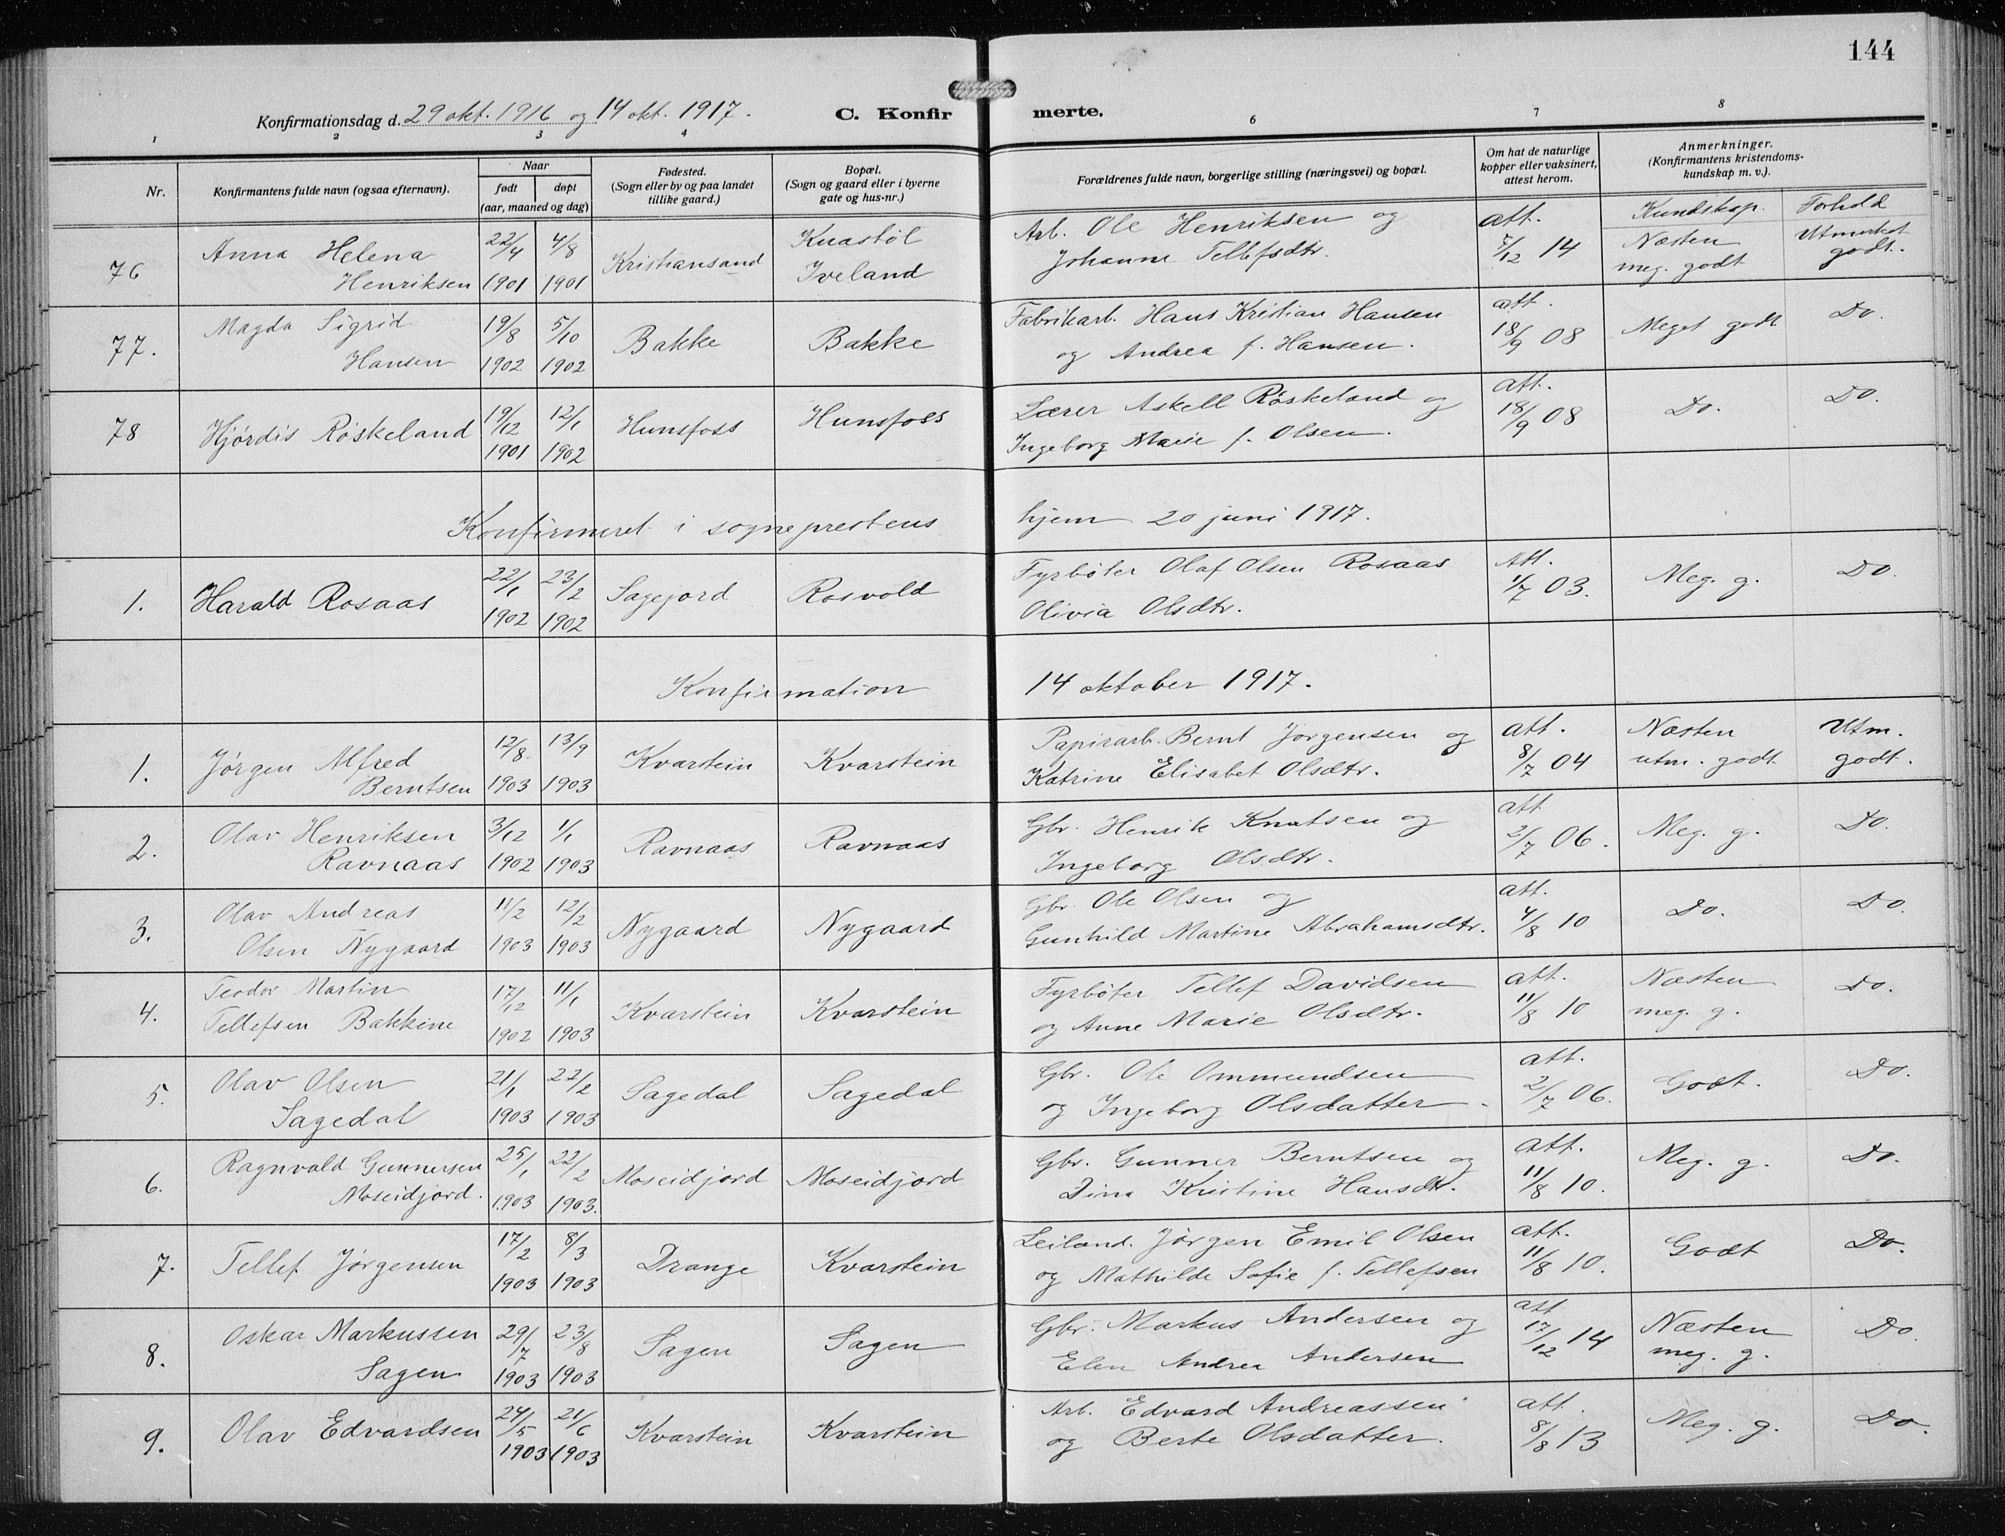 144
Konfirmationsdag d. 29 okt. 1916 og 14 okt. 1917. C. Konfirmerte.
1 2 3 4 6 7 8
Nr. Konfirmantens fulde navn (ogsaa efternavn). Naar født døpt (aar, maaned og dag) Fødested. (Sogn eller by og paa landet tillike gaard.) Bopæl. (Sogn og gaard eller i byerne gate og hus-nr.) Forældrenes fulde navn, borgerlige stilling (næringsvei) og bopæl. Om hat de naturlige kopper eller vaksinert, attest herom. Anmerkninger. (Konfirmantens kristendoms-kundskap m. v.).
Kundskap. Forhold
76 Anna Helena Henriksen 22/4 1901 4/8 1901 Kristiansand Knastøl Iveland Arb. Ole Henriksen og Johanne Tellefsdtr. att. 5/12 14 Næsten meg. godt Utmerket godt.
77. Magda Sigrid Hansen 19/8 1902 5/10 1902 Bakke Bakke Fabrikarb. Hans Kristian Hansen og Andrea f. Hansen. att. 18/9 08 Meget godt Do.
78 Hjørdis Røskeland 19/12 1901 12/1 1902 Hunsfoss Hunsfoss Lærer Askell Røskeland og Ingeborg Marie f. Olsen. att. 18/9 08 Do. Do.
Konfirmeret i sogneprestens hjem 20 juni 1917.
1. Harald Rosaas 22/1 1902 23/2 1902 Sagejord Rosvold Fyrbøter Olaf Olsen Rosaas Olivia Olsdtr. Att. 1/7 03. Meg. g. Do.
Konfirmation 14 oktober 1917.
1. Jørgen Alfred Berntsen 12/8 1903 13/9 1903 Kvarstein Kvarstein Papirarb. Bernt Jørgensen og Katrine Elisabet Olsdtr. att. 8/7 04 Næsten utm. godt Utm. godt.
2. Olav Henriksen Ravnaas 3/12 1902 1/1 1903 Ravnaas Ravnaas Gbr. Henrik Knutsen og Ingeborg Olsdtr. att 2/7 06. Meg. g. Do.
3. Olav Andreas Olsen Nygaard 11/2 1903 12/2 1903 Nygaard Nygaard Gbr. Ole Olsen og Gunhild Martine Abrahamsdtr. att. 4/8 10 Do. Do.
4. Teodor Martin Tellefsen Bakkine 17/12 1902 11/1 1903 Kvarstein Kvarstein Fyrbøter Tellef Davidsen og Anne Marie Olsdtr. att. 11/8 10 Næsten meg. g. Do.
5. Olav Olsen Sagedal 21/1 1903 22/2 1903 Sagedal Sagedal Gbr. Ole Ommundsen og Ingeborg Olsdatter. att. 2/7 06. Godt. Do.
6. Ragnvald Gunnersen Moseidjord. 25/1 1903 22/2 1903. Moseidjord Moseidjord Gbr. Gunner Berntsen og Dina Kristine Hansdtr. att. 11/8 10. Meg. g. Do.
7. Tellef Jørgensen 17/2 1903 8/3 1903 Drange Kvarstein Leiland. Jørgen Emil Olsen og Mathilde Sofie f. Tellefsen att. 11/8 10. Godt Do.
8. Oskar Markussen Sagen 29/7 1903 23/8 1903 Sagen Sagen Gbr. Markus Andersen og Elen Andrea Andersen att 17/12 14 Næsten meg. g. Do
9. Olav Edvardsen 24/5 1903 21/6 1903 Kvarstein Kvarstein Arb. Edvard Andreassen og Berte Olsdatter. att. 8/8 13 Meg. g. Do.